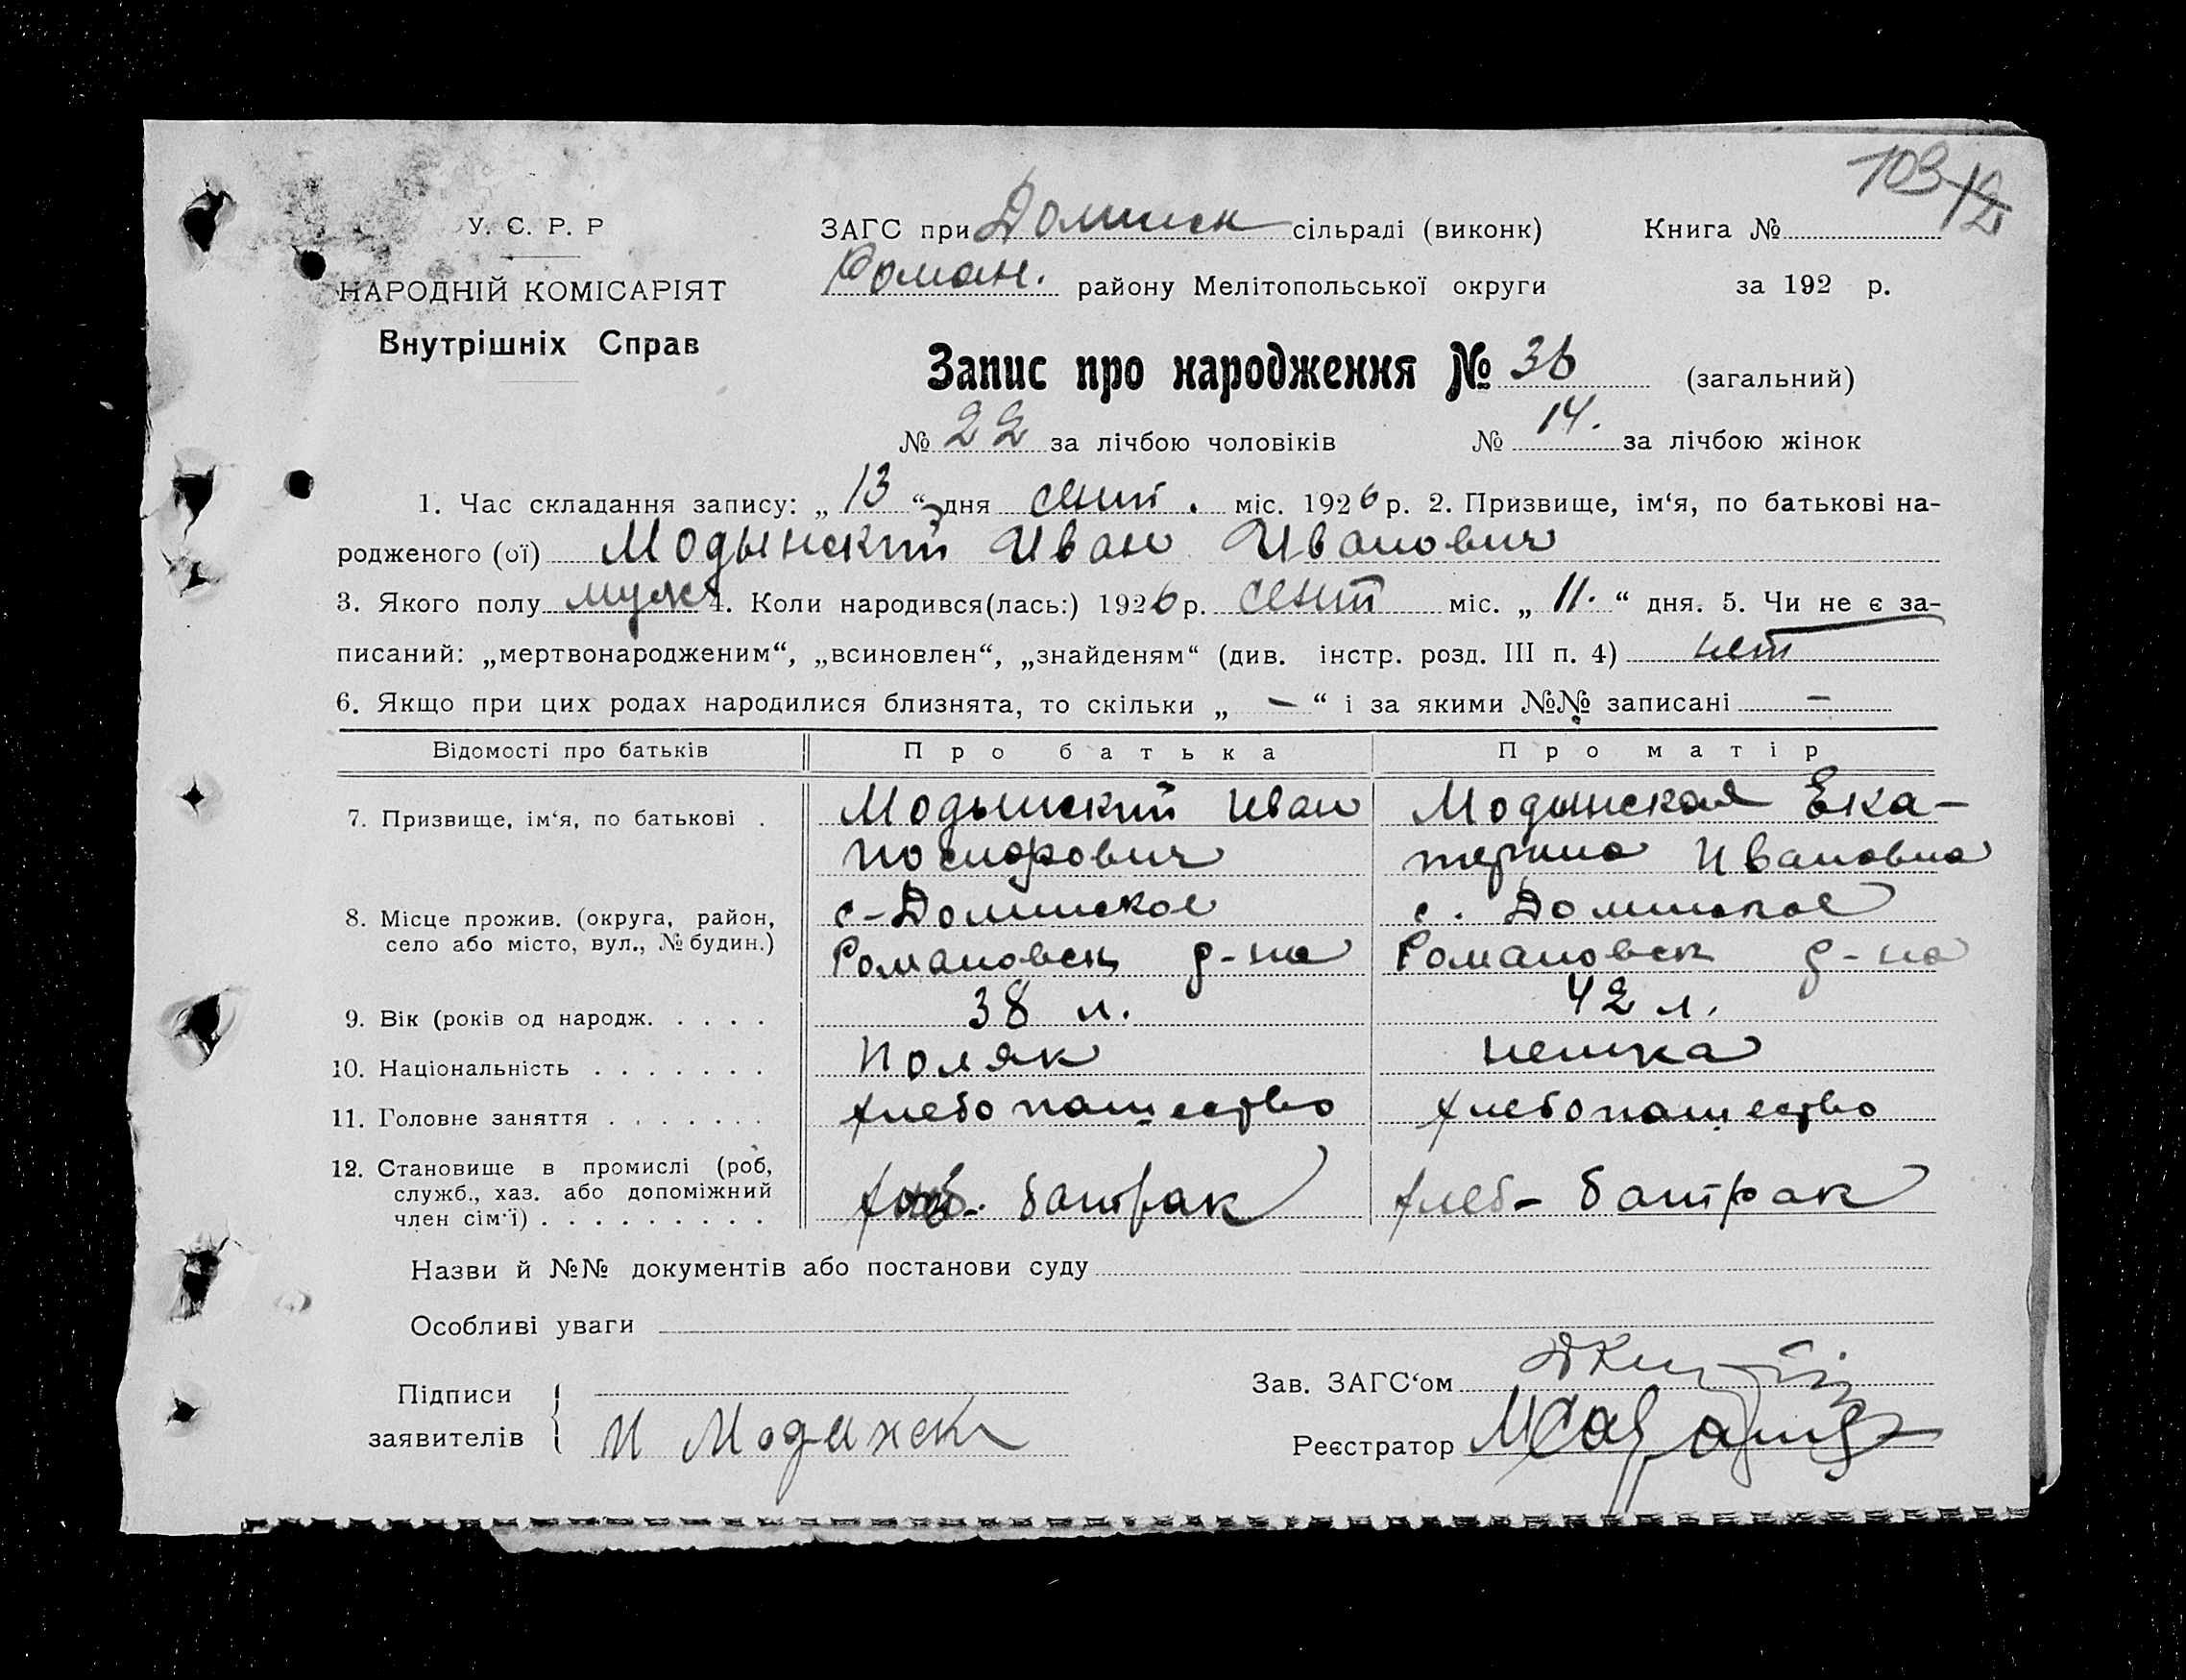 103
У. С. Р. Р
НАРОДНІЙ КОМІСАРІЯТ
Внутрішніх Справ
ЗАГС при Доминск сільраді (виконк)
Роман. району Мелітопольської округи
Книга №
за 192 р.
Запис про народження № 36 (загальний)
№ 22 за лічбою чоловіків № 14. за лічбою жінок
1. Час складання запису: „ 13 “ дня сент. міс. 1926 р. 2. Призвище, ім‘я, по батькові на-
родженого (ої) Модынский Иван Иванович
3. Якого полу муж 4. Коли народився(лась:) 1926 р. сент міс. „ 11. “ дня. 5. Чи не є за-
писаний: „мертвонародженим“, „всиновлен“, „знайденям“ (див. інстр. розд. III п. 4) нет
6. Якщо при цих родах народилися близнята, то скільки „ — “ і за якими №№ записані —
Відомості про батьків Про батька Про матір
7. Призвище, ім‘я, по батькові . Модынский Иван Модынская Ека-
терина Ивановна
8. Місце прожив. (округа, район, с-Доминское с. Доминское
село або місто, вул., № будин.) Романовск р-на Романовск р-на
9. Вік (років од народж. . . . . 38 л. 42 л.
10. Національність . . . . . . . Поляк немка
11. Головне заняття . . . . . . . хлебопашество хлебопашество
12. Становище в промислі (роб,
служб., хаз. або допоміжний батрак хлеб- батрак
член сім‘ї) . . . . . . . . .
Назви й №№ документів або постанови суду
Особливі уваги
Підписи
заявителів И Модинск
Зав. ЗАГС‘ом
Реєстратор